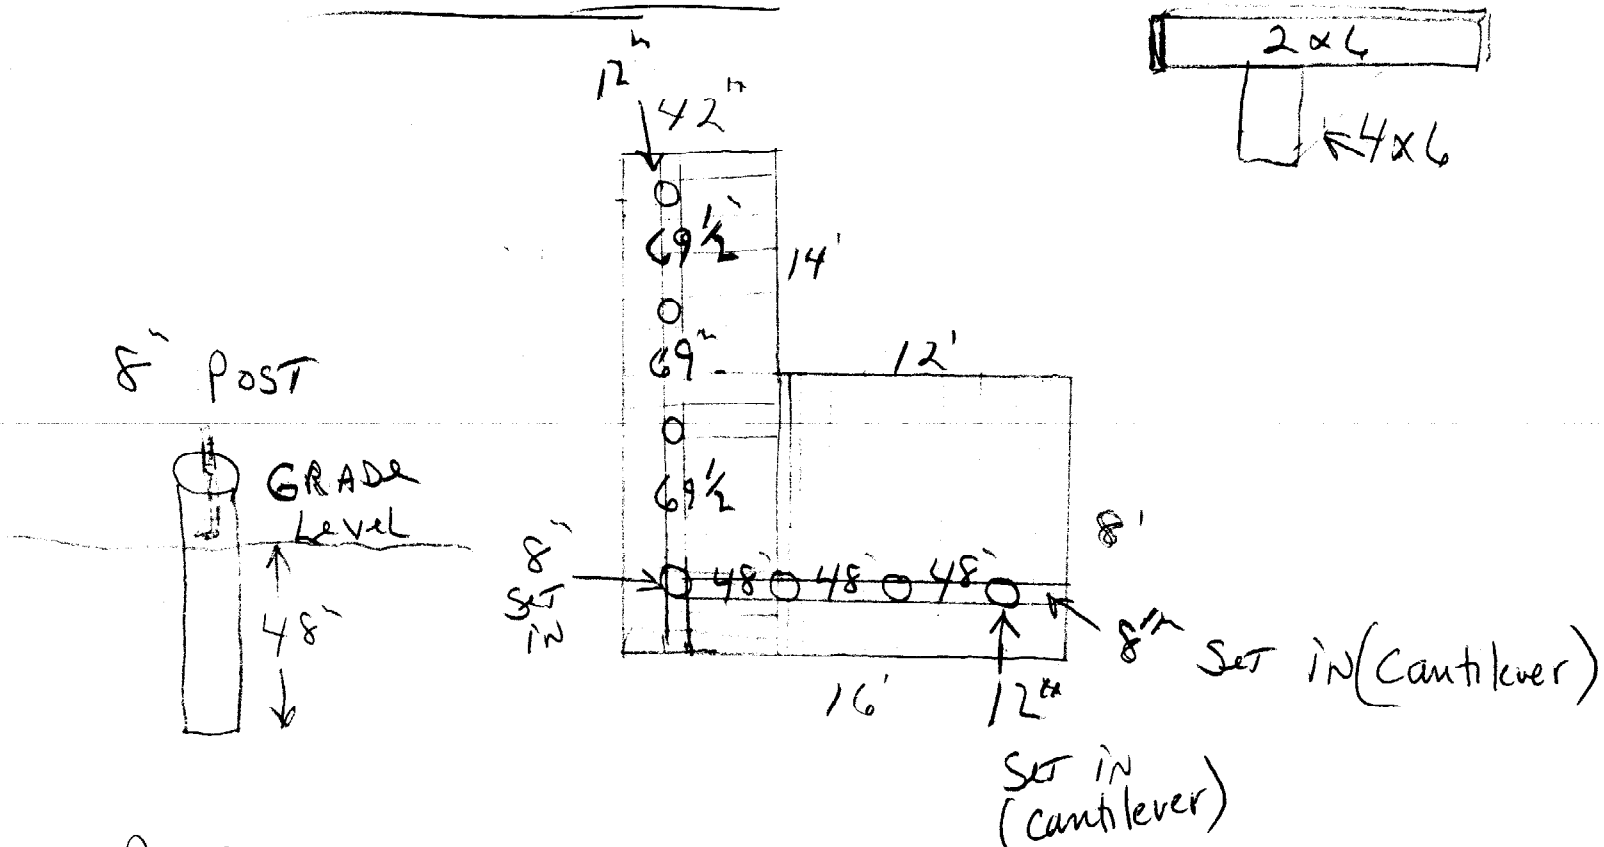 2x6
4x6
12"
42"
69 1/2"
14'
69"
12'
69 1/2
8" POST
GRADE
LEVEL
48"
8"
SET
IN
48" 48" 48"
8'
8" SET IN (Cantilever)
16'
12"
SET IN
(cantilever)